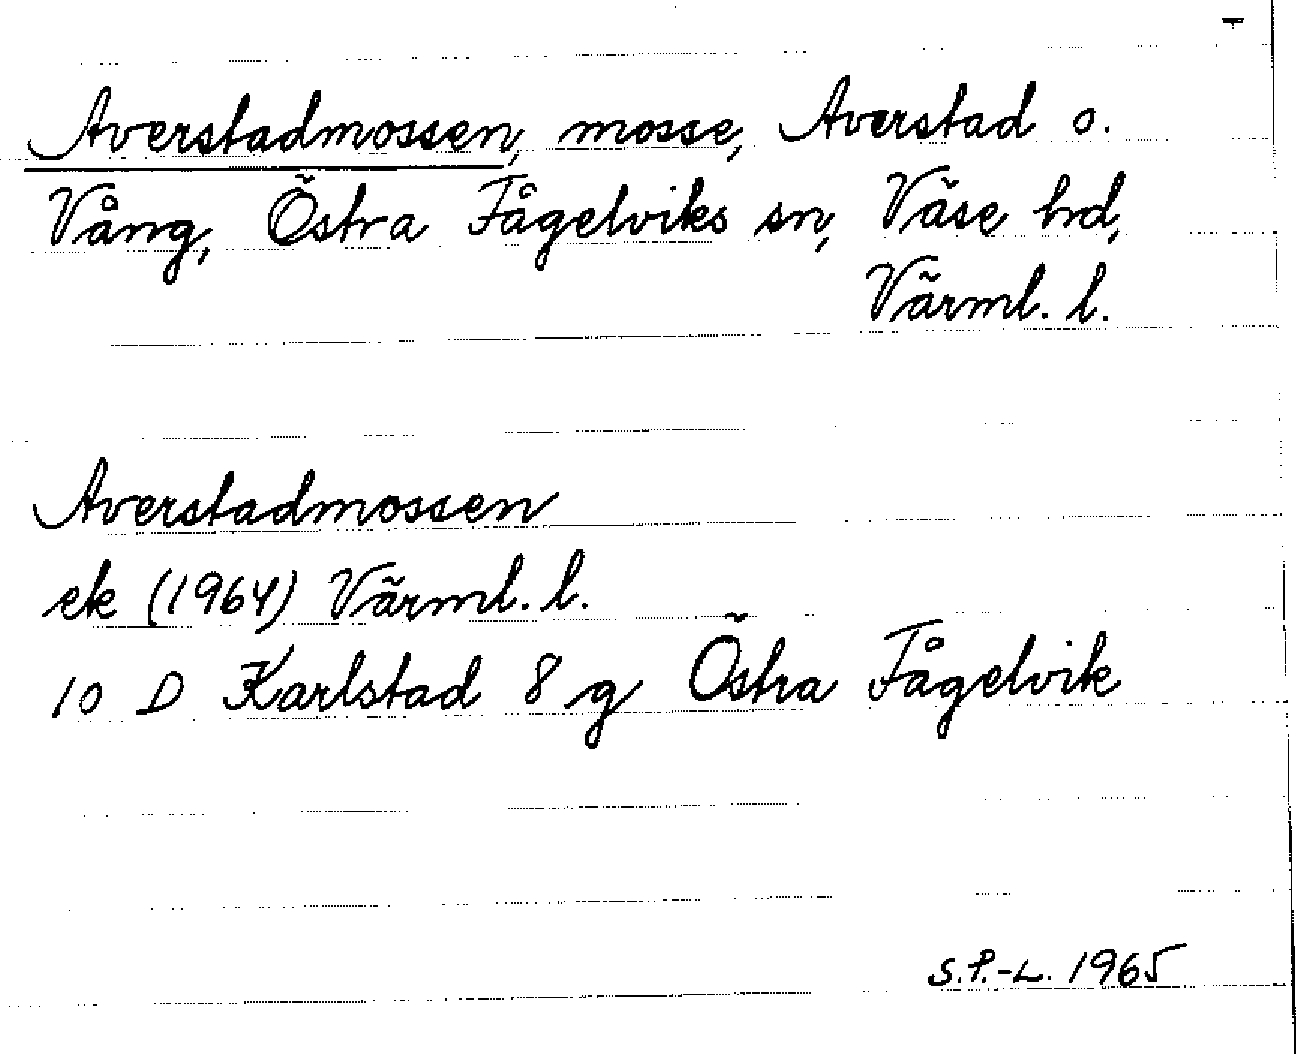 Averstadmossen, mosse, Averstad o.
Vång, Östra Fågelviks sn, Väse hd,
Värml. l.
Averstadmossen
ek (1964) Värml. l.
10 D Karlstad 8 g Östra Fågelvik
S.P.-L. 1965